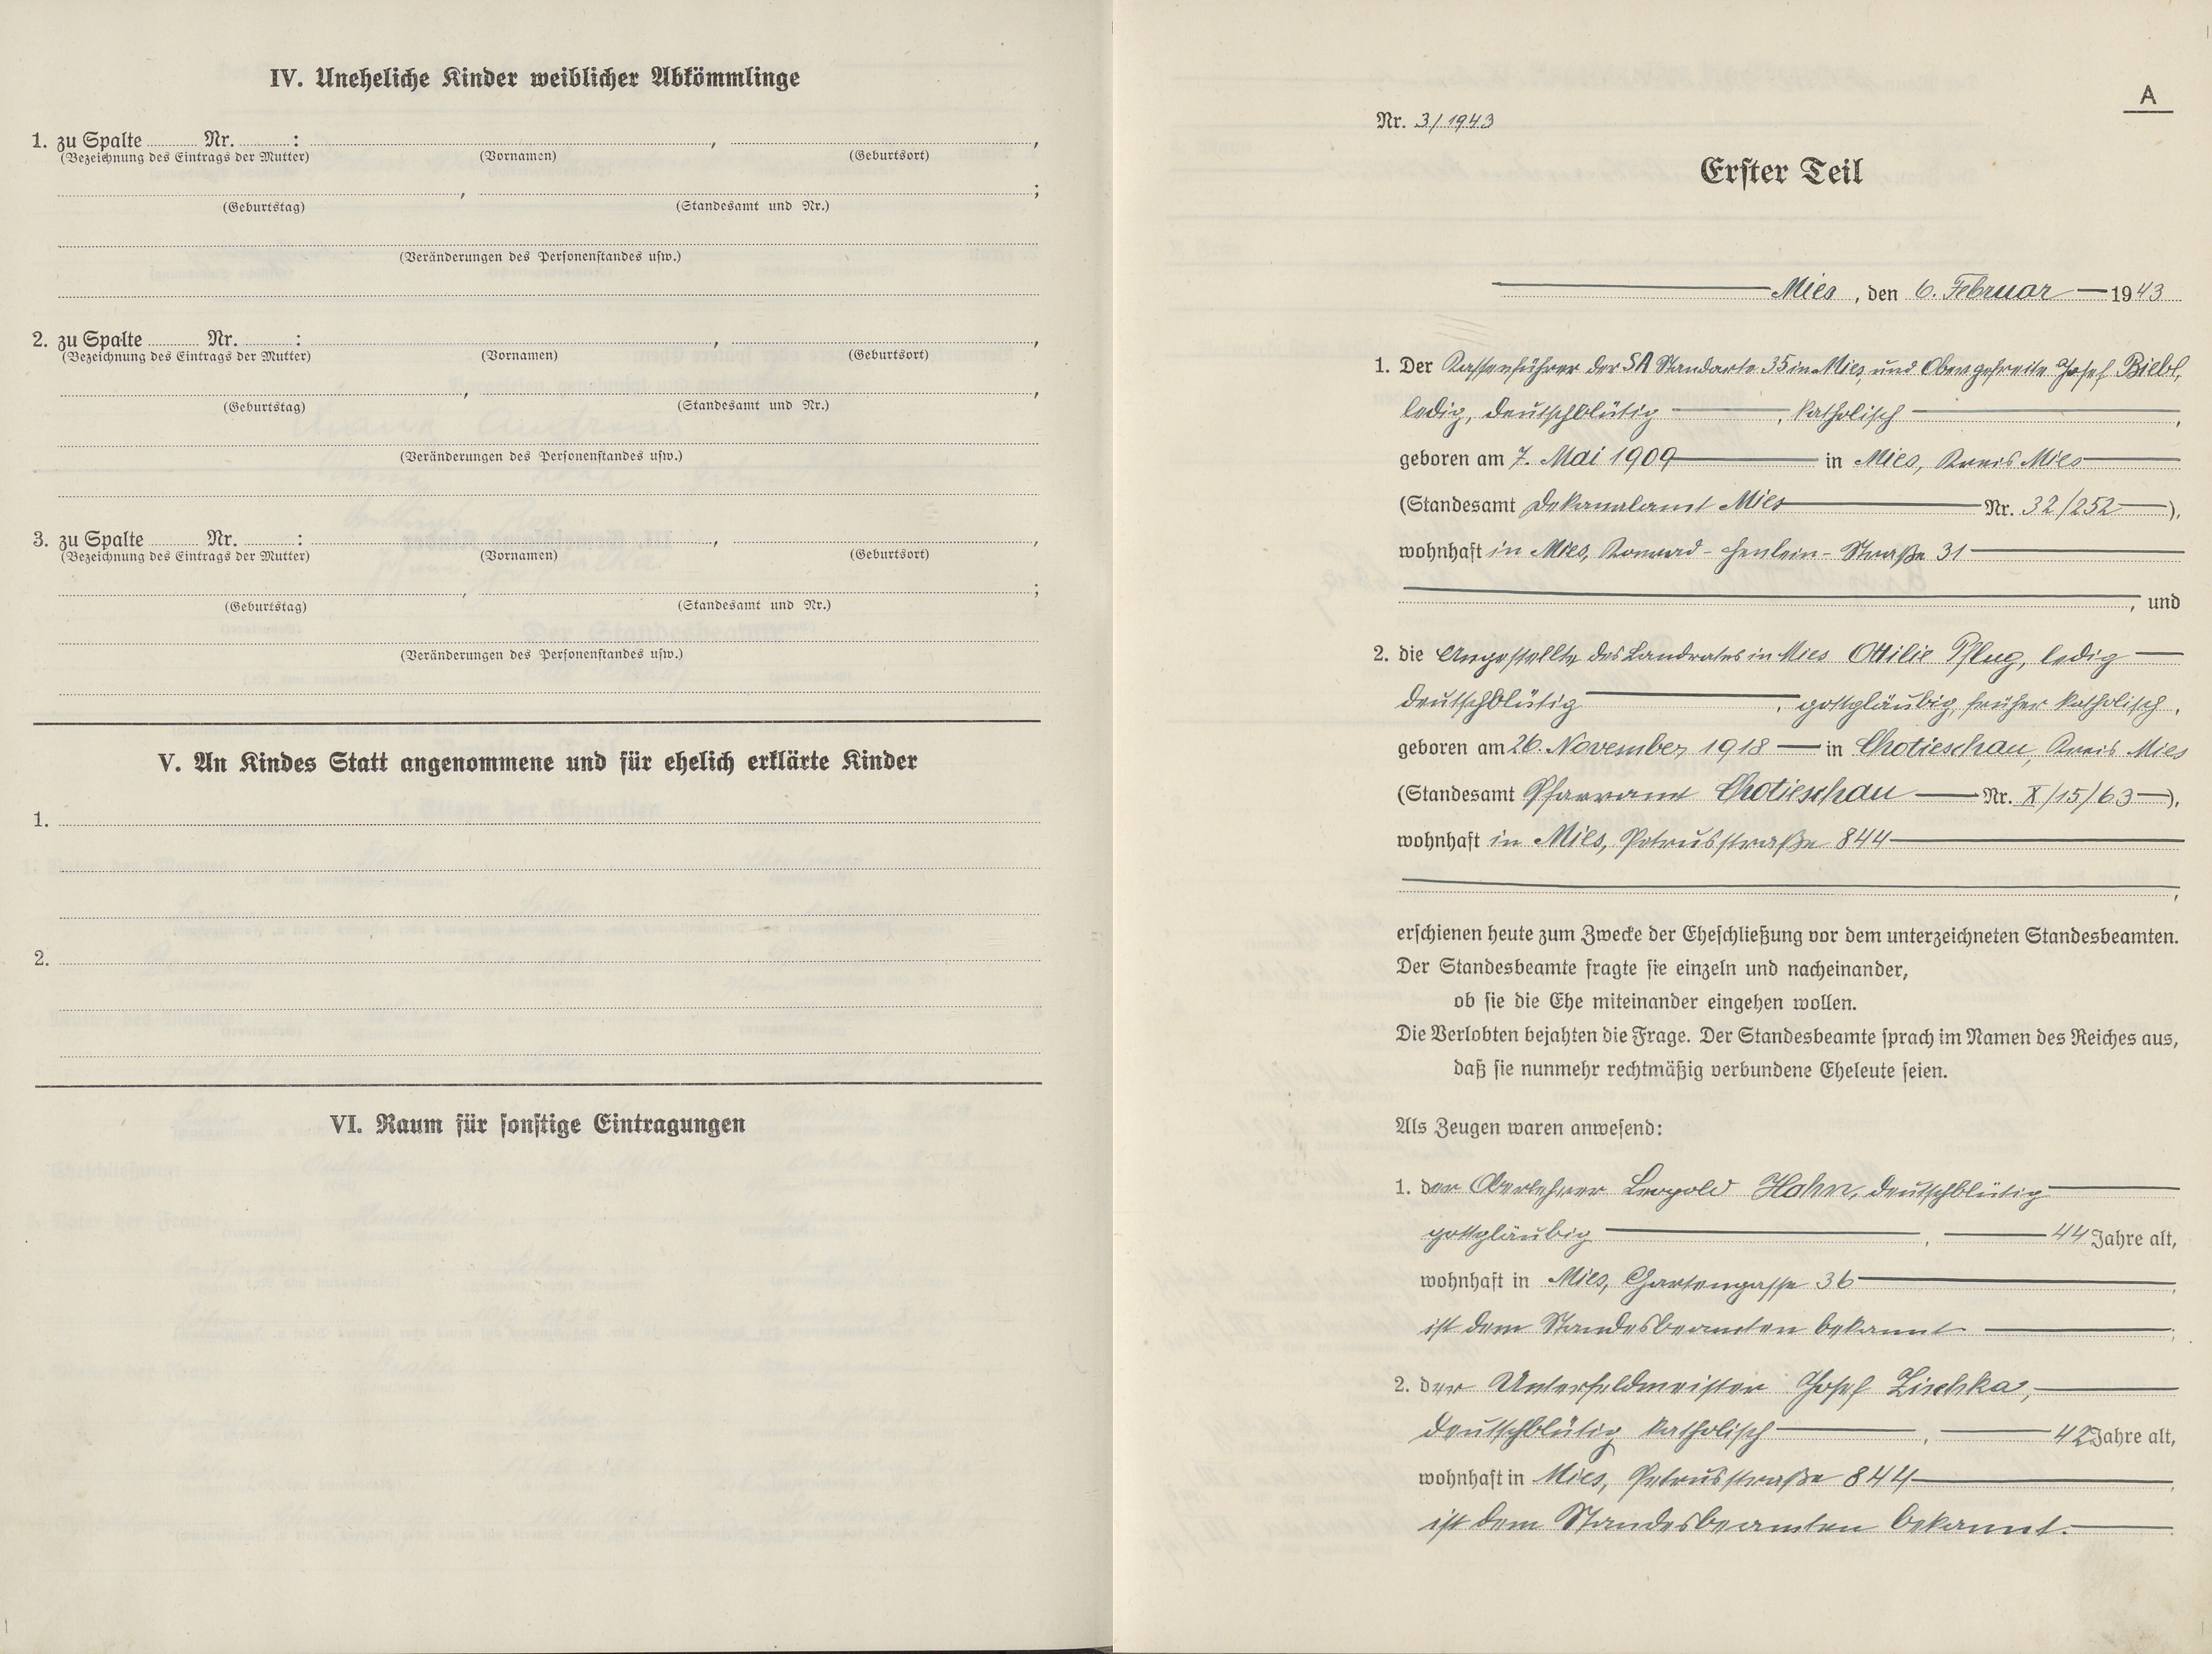 IV. Uneheliche Kinder weiblicher Abkömmlinge
1. zu Spalte ........ Nr. ........ : ........ , ........ ,
(Bezeichnung des Eintrags der Mutter) (Vornamen) (Geburtsort)
........ , ........ ;
(Geburtstag) (Standesamt und Nr.)
(Veränderungen des Personenstandes usw.)
2. zu Spalte ........ Nr. ........ : ........ , ........ ,
(Bezeichnung des Eintrags der Mutter) (Vornamen) (Geburtsort)
........ , ........ ,
(Geburtstag) (Standesamt und Nr.)
(Veränderungen des Personenstandes usw.)
3. zu Spalte ........ Nr. ........ : ........ , ........ ,
(Bezeichnung des Eintrags der Mutter) (Vornamen) (Geburtsort)
........ , ........ ;
(Geburtstag) (Standesamt und Nr.)
(Veränderungen des Personenstandes usw.)
V. An Kindes Statt angenommene und für ehelich erklärte Kinder
1.
2.
VI. Raum für sonstige Eintragungen
A
Nr. 3/1943
Erster Teil
Mies, den 6. Februar 1943
1. Der Kassenführer der SA Standarte 35 in Mies, und Obergefreite Josef Biebl,
ledig, deutschblütig, katholisch,
geboren am 7. Mai 1909 in Mies, Kreis Mies
(Standesamt Dekanalamt Mies Nr. 32/252),
wohnhaft in Mies, Konrad-Henlein-Straße 31
, und
2. die Angestellte des Landrates in Mies Ottilie Pflug, ledig
deutschblütig, gottgläubig, früher katholisch,
geboren am 26. November 1918 in Chotieschau, Kreis Mies
(Standesamt Pfarramt Chotieschau Nr. X/15/63),
wohnhaft in Mies, Petrusstraße 844
,
erschienen heute zum Zwecke der Eheschließung vor dem unterzeichneten Standesbeamten.
Der Standesbeamte fragte sie einzeln und nacheinander,
ob sie die Ehe miteinander eingehen wollen.
Die Verlobten bejahten die Frage. Der Standesbeamte sprach im Namen des Reiches aus,
daß sie nunmehr rechtmäßig verbundene Eheleute seien.
Als Zeugen waren anwesend:
1. der Oberlehrer Leopold Hahn, deutschblütig
gottgläubig, 44 Jahre alt,
wohnhaft in Mies, Gartengasse 36,
ist dem Standesbeamten bekannt;
2. der Unterfeldmeister Josef Zischka,
deutschblütig katholisch, 42 Jahre alt,
wohnhaft in Mies, Petrusstraße 844,
ist dem Standesbeamten bekannt.